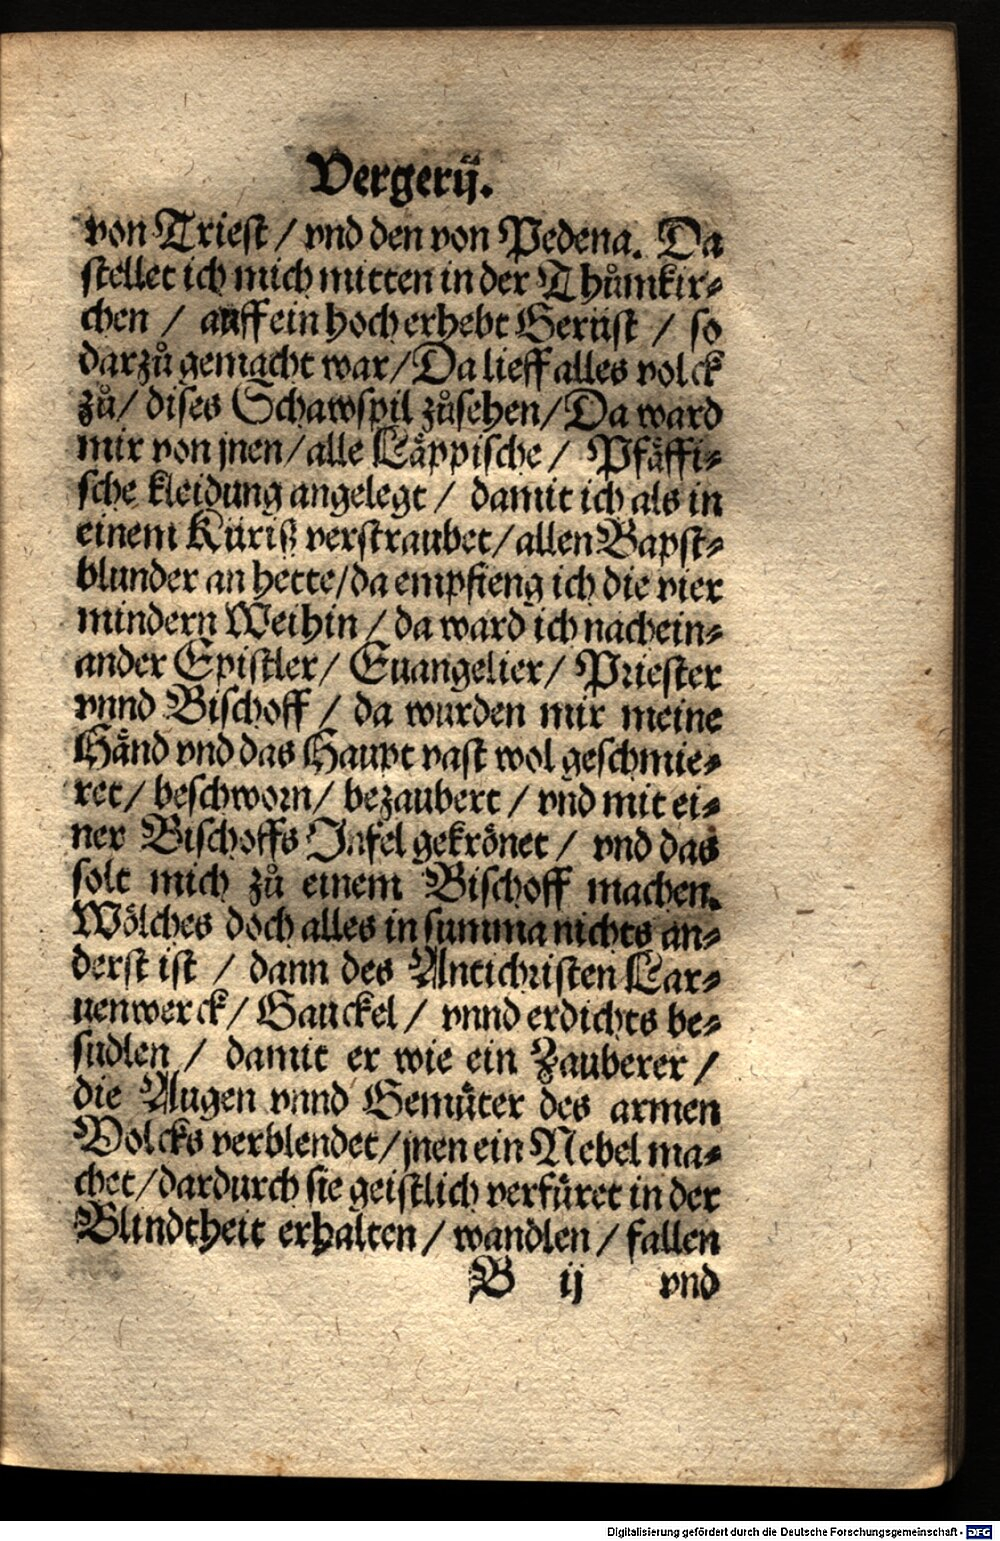 Vergerij.
von Triest / vnd den von Pedena. Da
stellet ich mich mitten in der Thůmkir⸗
chen / auff ein hoch erhebt Gerüst / so
darzů gemacht war / Da lieff alles volck
zů / dises Schawspil zůsehen / Da ward
mir von jnen / alle Läppische / Pfäffi⸗
sche kleidung angelegt / damit ich als in
einem Küriß verstraubet / allen Bapst⸗
blunder an hette / da empfieng ich die vier
mindern Weihin / da ward ich nachein⸗
ander Epistler / Euangelier / Priester
vnnd Bischoff / da wurden mir meine
Händ vnd das Haupt vast wol geschmie⸗
ret / beschworn / bezaubert / vnd mit ei⸗
ner Bischoffs Infel gekrönet / vnd das
solt mich zů einem Bischoff machen.
Wölches doch alles in summa nichts an⸗
derst ist / dann des Antichristen Lar⸗
uenwerck / Gauckel / vnnd erdichts be⸗
sudlen / damit er wie ein Zauberer /
die Augen vnnd Gemüter des armen
Volcks verblendet / jnen ein Nebel ma⸗
chet / dardurch sie geistlich verfüret in der
Blindtheit erhalten / wandlen / fallen
B ij vnd
Digitalisierung gefördert durch die Deutsche Forschungsgemeinschaft - DFG